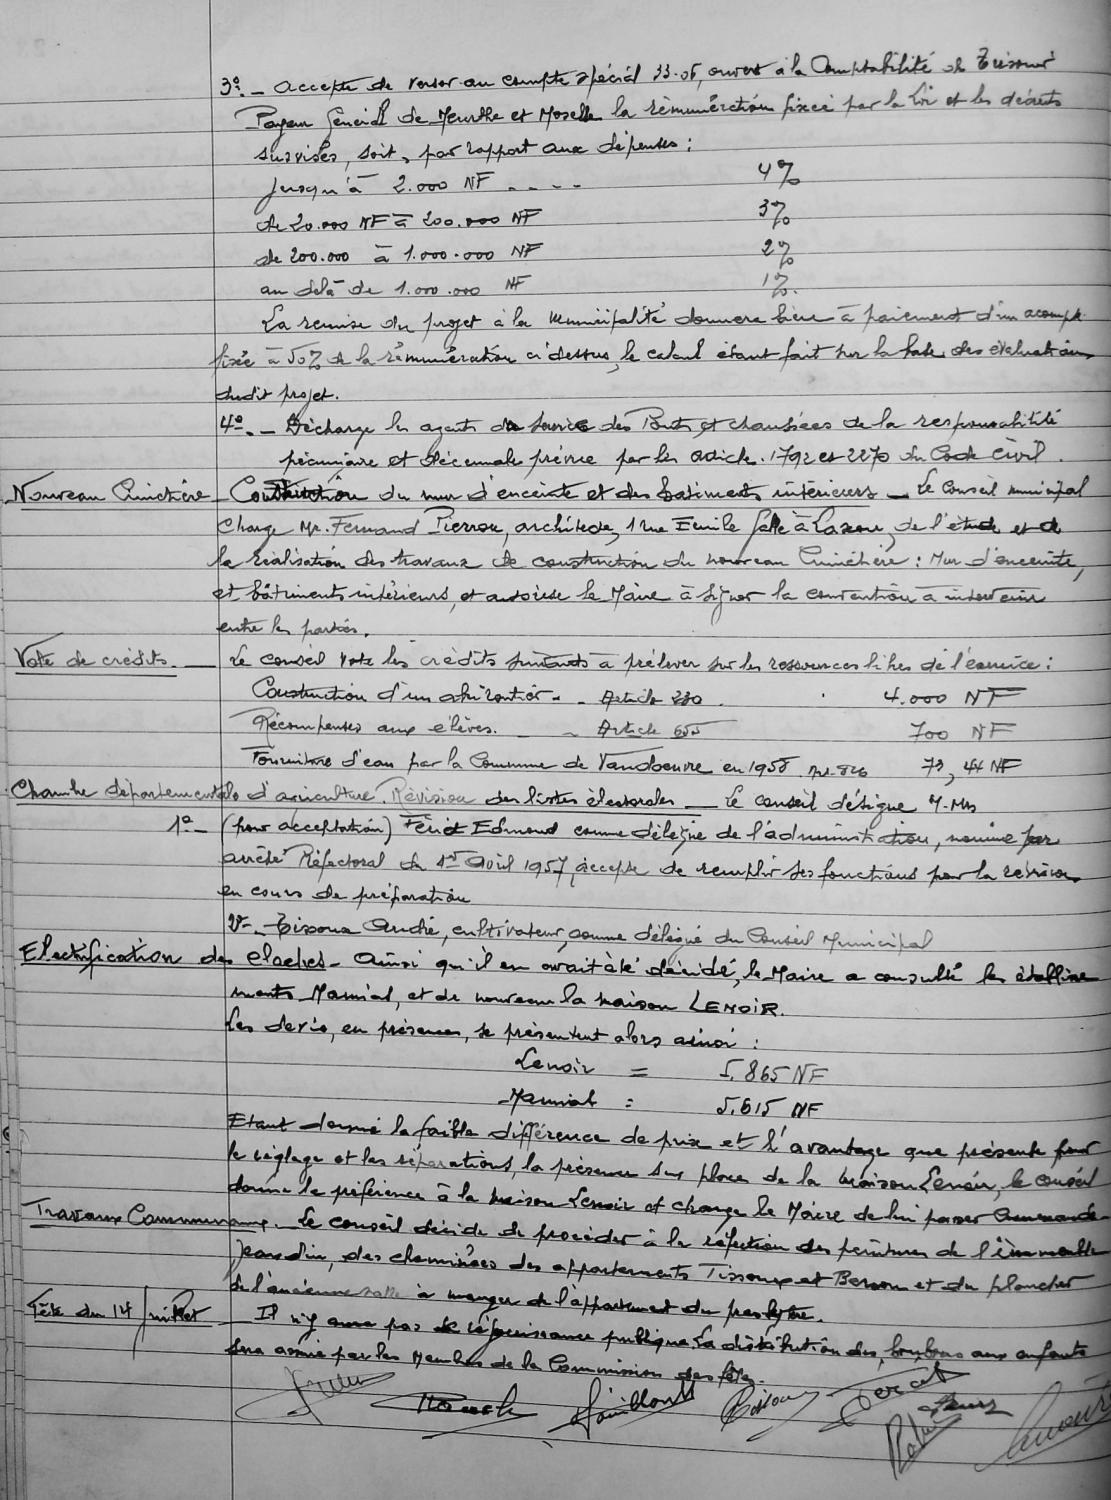 3º. _ Accepte de verser au compte spécial 33-06, ouvert à la Comptabilité de Trésorier
Payeur Général de Meurthe et Moselle la rémunération fixée par la loi et les décrets
susvisés, soit, par rapport aux dépenses :
Jusqu'à 2.000 NF . . . . 4%
de 20.000 NF à 200.000 NF 3%
de 200.000 à 1.000.000 NF 2%
au delà de 1.000.000 NF 1%.
La remise du projet à la Municipalité donnera lieu à paiement d'un acompte
fixée à 50% de la rémunération ci dessus, le calcul étant fait sur la base des évaluations
dudit projet.
4º. _ Décharge les agents du service des Ponts et chaussées de la responsabilité
pécuniaire et décennale prévue par les article. 1792 et 2270 du Code Civil.
Nouveau Cimetière _ Construction du mur d'enceinte et des batiments intérieurs _ Le Conseil municipal
Charge Mr. Fernand Pierron, architecte, 1 rue Emile Gallé à Laxou, de l'étude et de
la réalisation des travaux de construction du nouveau Cimetière : Mur d'enceinte,
et bâtiments intérieurs, et autorise le Maire à signer la convention à intervenir
entre les parties.
Vote de crédits. _ Le conseil vote les crédits suivants à prélever sur les ressources libres de l'exercice :
Construction d'un . . Article 230 . 4.000 NF
Récompenses aux élèves. _ _ Article 655 700 NF
Fourniture d'eau par la Commune de Vandoeuvre en 1958 Art. 826 73,44 NF
Chambre départementale d'agriculture. Révision des listes électorales _ Le conseil désigne M. Mrs
1º _ (pour acceptation) Fériet Edmond comme délégué de l'administration, nommé par
arrêté Préfectoral du 1er Avril 1957, accepte de remplir ses fonctions pour la révision
en cours de préparation
2º _ Tissoux André, cultivateur, comme délégué du Conseil Municipal
Electrification des cloches _ Ainsi qu'il en avait été décidé, le Maire a consulté les établisse
ments Mamias, et de nouveau la maison LENOIR.
Les devis, en présence, se présentent alors ainsi :
Lenoir = 5.865 NF
Mamias : 5.615 NF
Etant donné la faible différence de prix et l'avantage que présente pour
le réglage et les réparations, la présence sur place de la maison Lenoir, le conseil
donne la préférence à la maison Lenoir et charge le Maire de lui passer commande
Travaux Communaux. _ Le conseil décide de procéder à la réfection des peintures de l'immeuble
Jeandin, des cheminées des appartements Tissoux et Berson et du plancher
de l'ancienne salle à manger de l'appartement du presbytère.
Fête du 14 Juillet _ Il n'y aura pas de réjouissance publique. La distribution des bonbons aux enfants
sera assurée par les Membres de la Commission des fêtes.